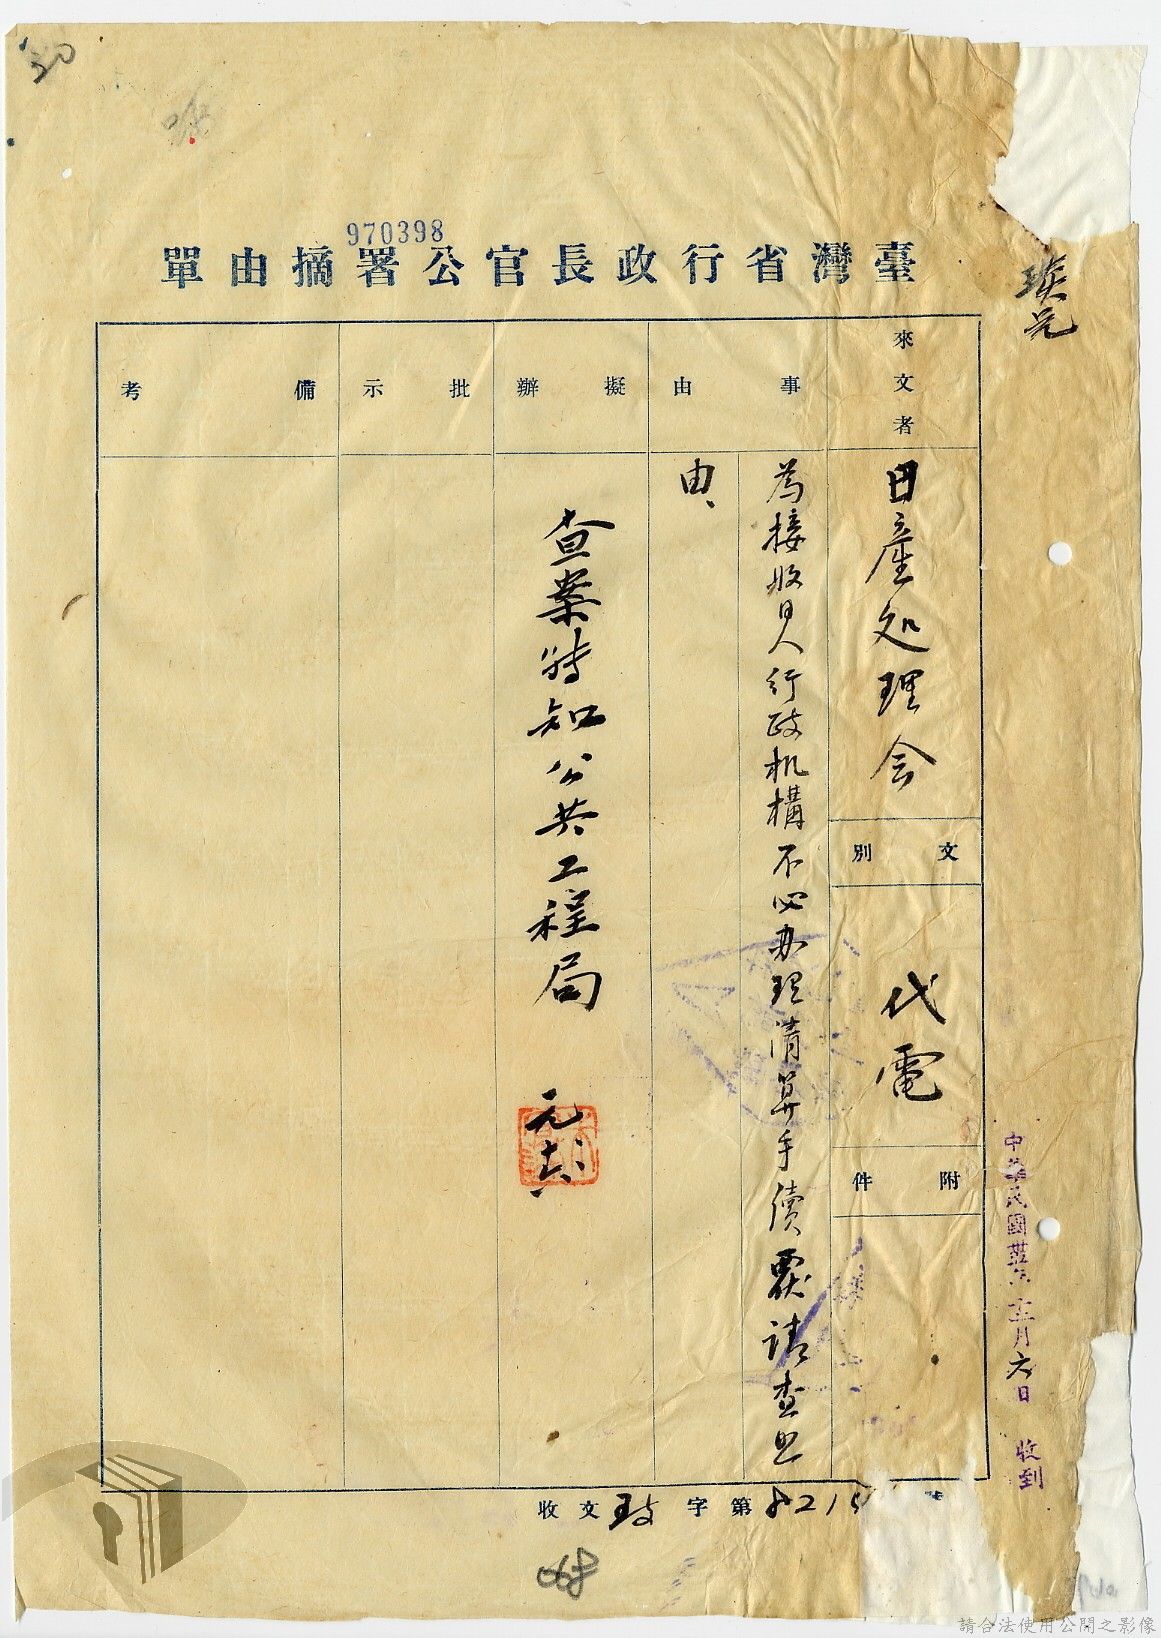 970398
臺灣省行政長官公署摘由單
來文者
日產処理会
文別
代電
附件
事由
為接收日人行政机構不必办理清算手續覆請查照
由、
擬辦
查案转知公共工程局
元六
批示
備考
中華民國
月六日
收到
收文玫字第8215
068
請合法使用公開之影像